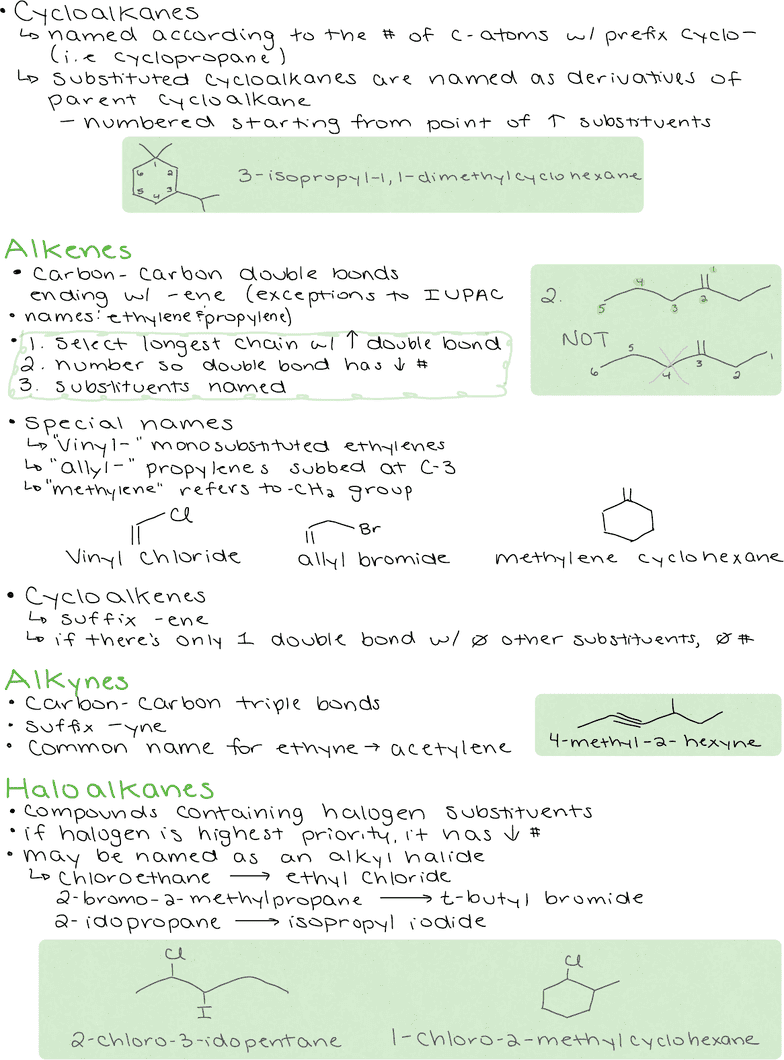 • Cycloalkanes
↳ named according to the # of C-atoms w/ prefix cyclo-
(i.e cyclopropane)
↳ substituted cycloalkanes are named as derivatives of
parent cycloalkane
- numbered starting from point of ↑ substituents
1
6 2
5 3
4
3-isopropyl-1,1-dimethylcyclohexane
Alkenes
• Carbon-carbon double bonds
ending w/ -ene (exceptions to IUPAC
• names: ethylene & propylene)
• 1. Select longest chain w/ ↑ double bond
2. number so double bond has ↓ #
3. substituents named
2.
1
4
5 3 2
NOT
5 3 1
6 4 2
• Special names
↳ "vinyl-" monosubstituted ethylenes
↳ "allyl-" propylenes subbed at C-3
↳ "methylene" refers to -CH₂ group
Cl
Br
Vinyl Chloride allyl bromide methylene cyclohexane
• Cycloalkenes
↳ suffix -ene
↳ if there's only 1 double bond w/ ∅ other substituents, ∅ #
Alkynes
• Carbon-carbon triple bonds
• suffix -yne
• Common name for ethyne → acetylene
4-methyl-2-hexyne
Haloalkanes
• compounds containing halogen substituents
• if halogen is highest priority, it has ↓ #
• may be named as an alkyl halide
↳ Chloroethane → ethyl chloride
2-bromo-2-methylpropane → t-butyl bromide
2-idopropane → isopropyl iodide
Cl
I
2-chloro-3-idopentane
Cl
1-Chloro-2-methylcyclohexane